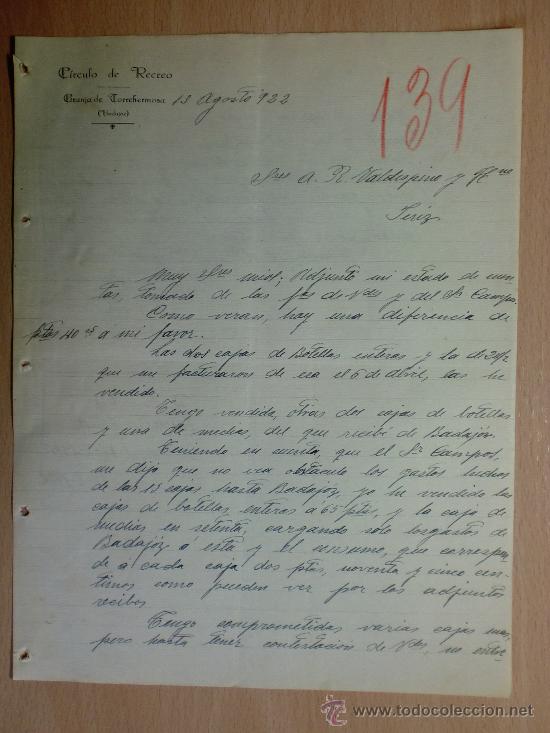 Círculo de Recreo
Granja de Torrehermosa
(Badajoz)
13 Agosto 922
139
Sres A. R. Valdespino y Hno
Jeréz
Muy Sres mios; Adjunto mi estado de cuen-
tas, tomado de las fras de Vdes y del Sr Campos.
Como verán, hay una diferencia de
ptas 40 a mi favor.
Las dos cajas de Botellas enteras y la de
que me facturaron de esa el 6 de Abril, las he
vendido.
Tengo vendida, otras dos cajas de botellas
y una de medias, del que recibí de Badajóz.
Teniendo en cuenta, que el Sr Campos,
me dijo que no era obstáculo los gastos hechos
de las 15 cajas hasta Badajóz, yo he vendido las
cajas de botellas, enteras a 65 ptas, y la caja de
medias en setenta, cargando solo los gastos de
Badajóz á esta y el consumo, que correspon-
de a cada caja dos ptas, noventa y cinco cen-
timos como pueden ver por los adjuntos
recibos
Tengo comprometidas varias cajas mas,
pero hasta tener contestación de Vdes, no
todocoleccion
www.todocoleccion.net